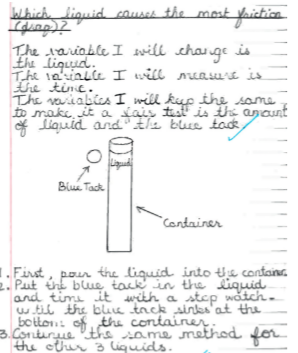 Which liquid causes the most friction
(drag)?
The variable I will change is
the liquid.
The variable I will measure is
the time.
The variables I will keep the same
to make it a fair test is the amount
of liquid and the blue tack.
Liquid
Blue Tack
Container
1. First, pour the liquid into the container.
2. Put the blue tack in the liquid
and time it with a stop watch
until the blue tack sinks at the
bottom of the container.
3. Continue the same method for
the other 3 liquids.